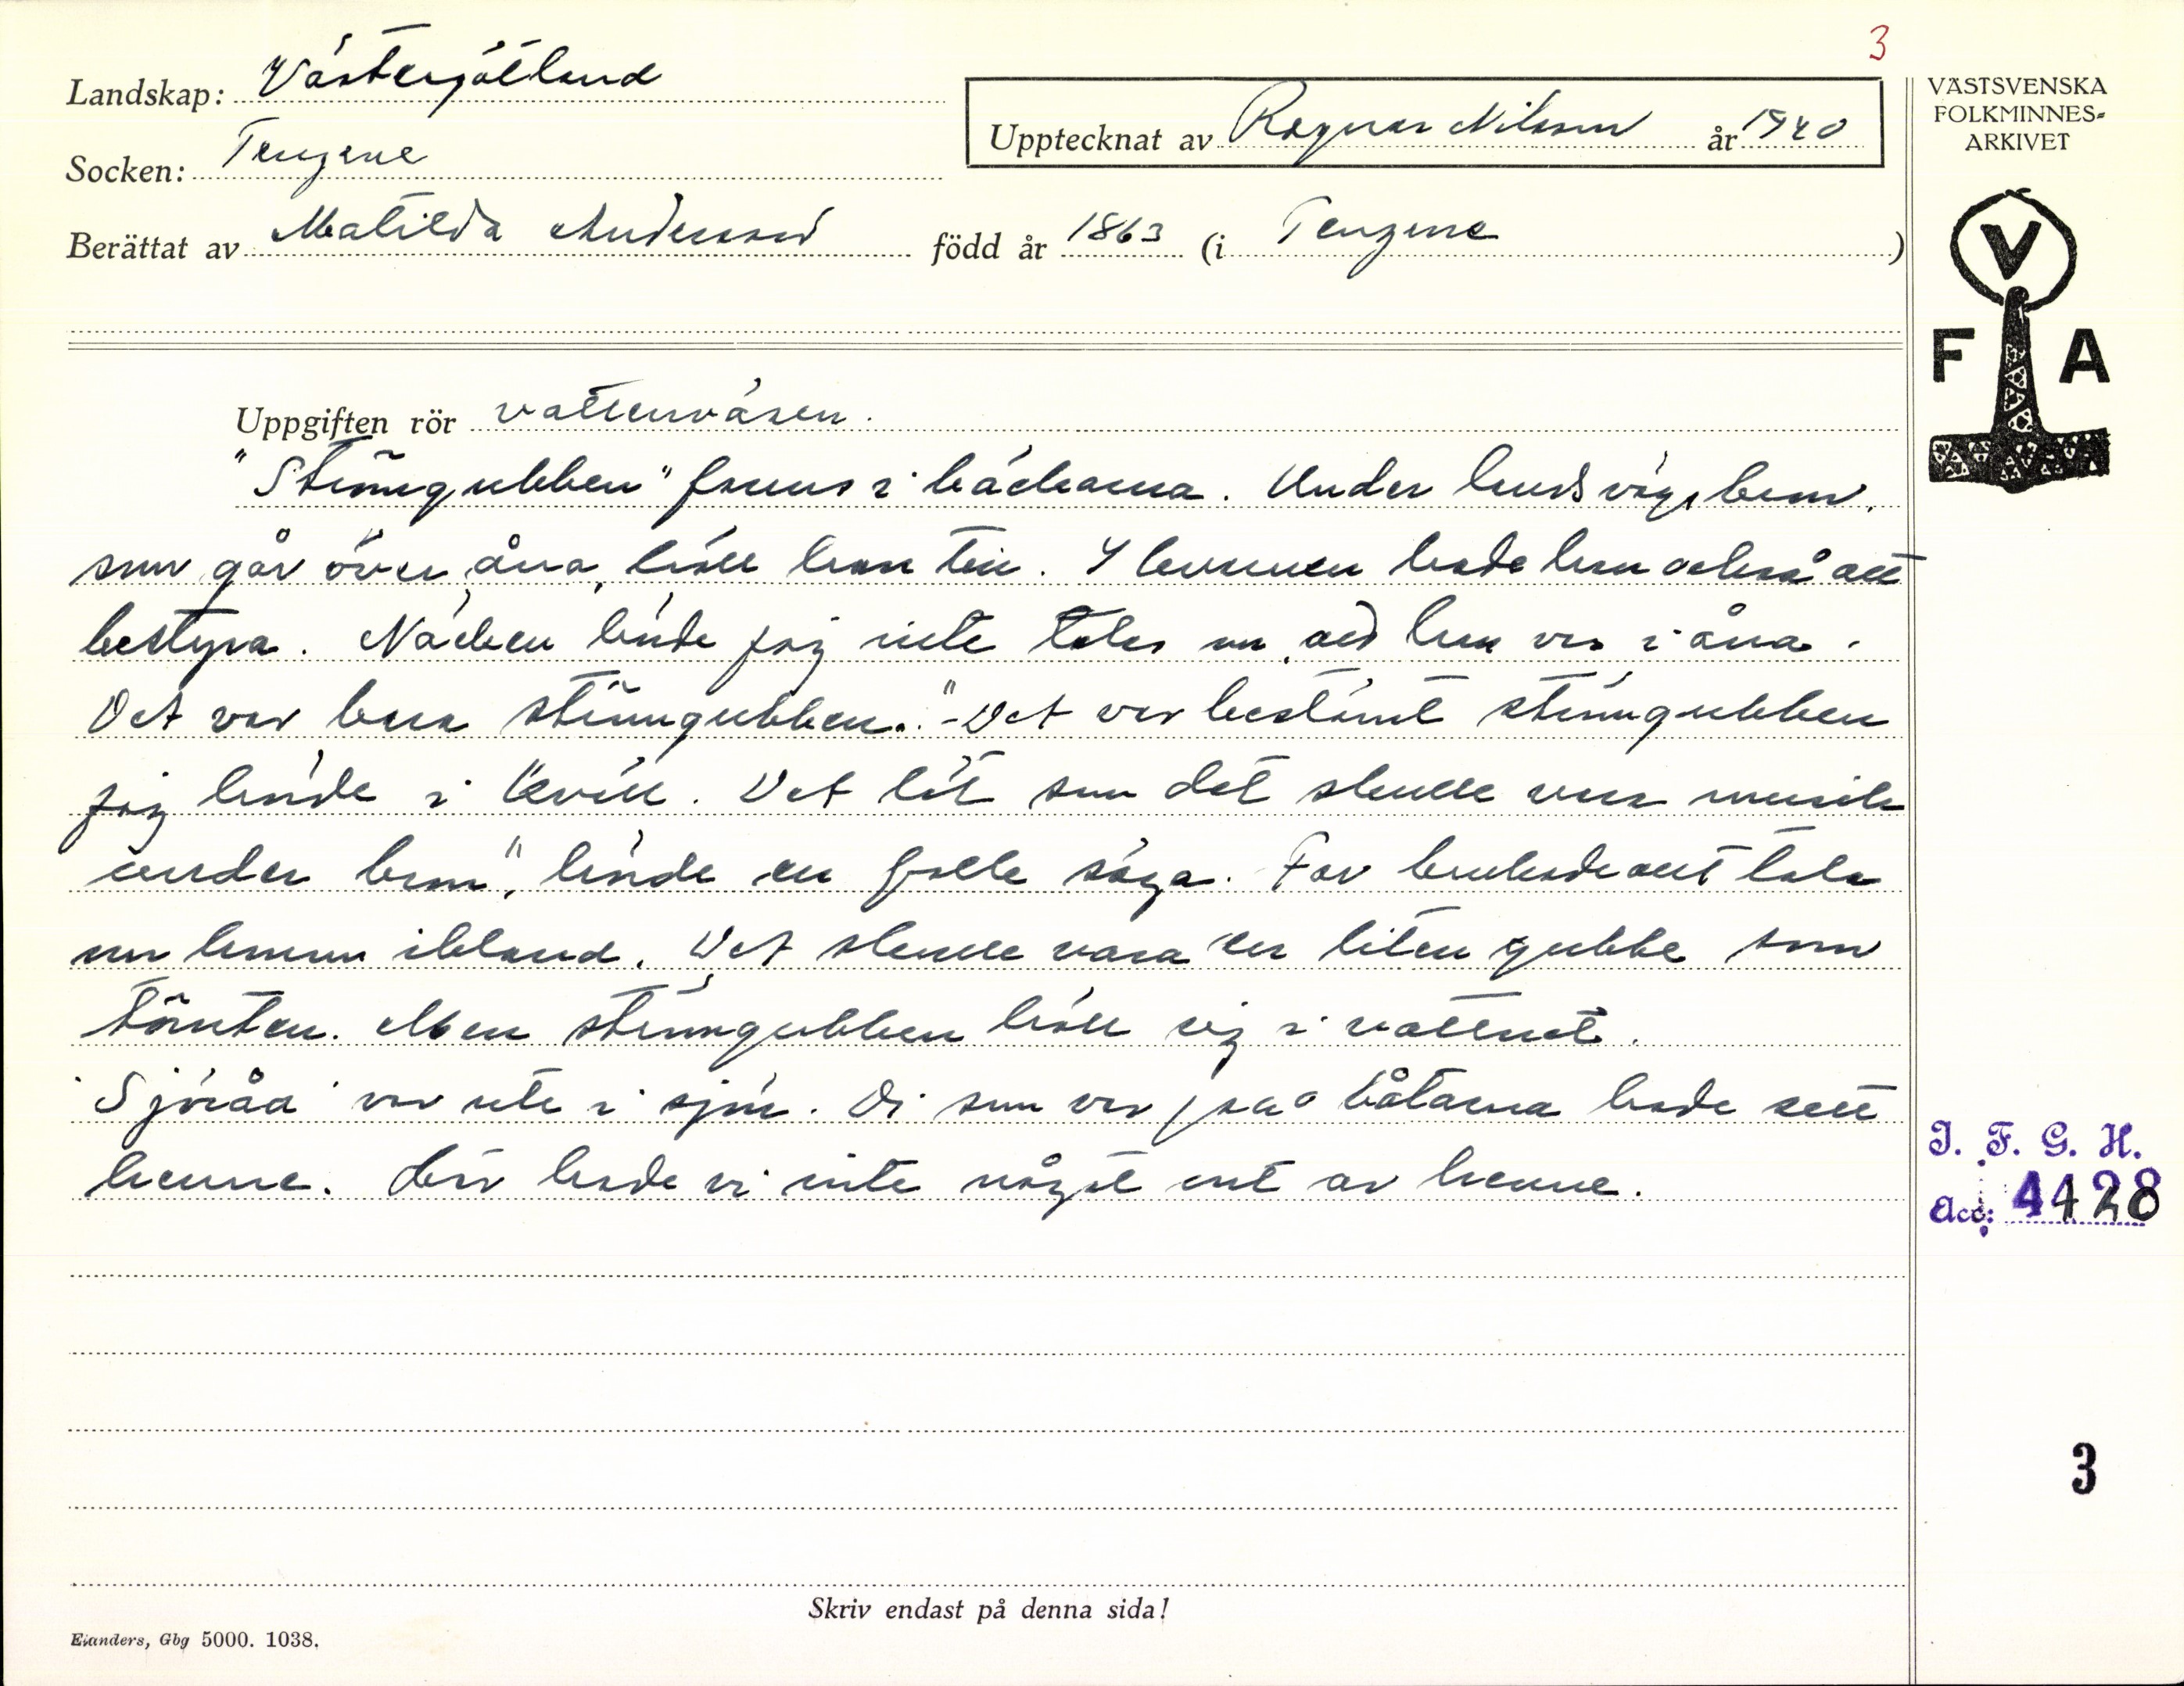 3
Landskap: Västergötland
Upptecknat av Ragnar Nilsson år 1940
VÄSTSVENSKA
FOLKMINNES-
ARKIVET
Socken: Tengene
Berättat av Matilda Andersson född år 1863 (i Tengene)
V
F A
Uppgiften rör vattenväsen.
"Strömgubben" fanns i bäckarna. Under landsvägsbron,
som går över åna, höll han till. I brunnen hade han också att
bestyra. Näcken hörde jag inte talas om, att han var i åna.
Det var bara strömgubben. "-Det var bestämt strömgubben
jag hörde i kväll. Det lät som det skulle vara musik
under bron", hörde en folk säga. Far brukade att tala
om honom ibland. Det skulle vara en liten gubbe som
tomten. Men strömgubben höll sig i vattnet.
'Sjöråa' var ute i sjön. Di som var på båtarna hade sett
henne. Här hade vi inte något ont av henne.
I. F. G. H.
Acc: 4428
3
Skriv endast på denna sida!
Elanders, Gbg 5000. 1038.